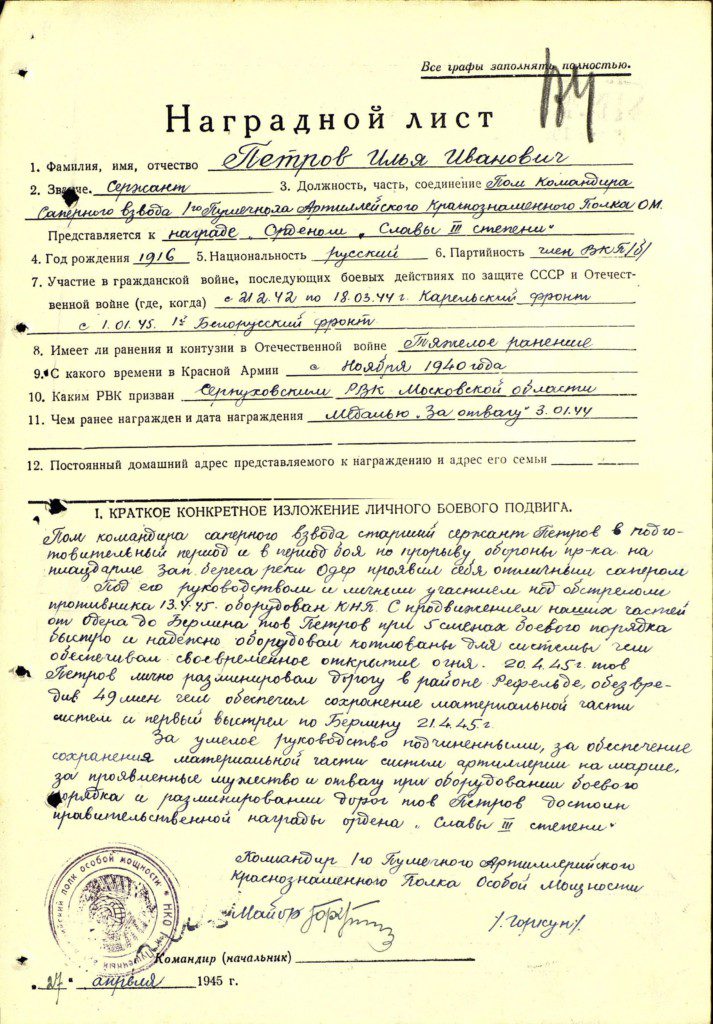 Все графы заполнять полностью.
Наградной лист
1. Фамилия, имя, отчество Петров Илья Иванович
2. Звание. Сержант 3. Должность, часть, соединение Пом командира
Саперного взвода 1го Пушечного Артиллейского Краснознаменного Полка ОМ.
Представляется к награде „Орденом „Славы III степени"
4. Год рождения 1916 5. Национальность русский 6. Партийность член ВКП/б/
7. Участие в гражданской войне, последующих боевых действиях по защите СССР и Отечест-
венной войне (где, когда) с 21.2.42 по 18.03.44 г. Карельский фронт
с 1.01.45. 1й Белорусский фронт
8. Имеет ли ранения и контузии в Отечественной войне Тяжелое ранение
9. С какого времени в Красной Армии с Ноября 1940 года
10. Каким РВК призван Серпуховским РВК Московской области
11. Чем ранее награжден и дата награждения Медалью „За отвагу" 3.01.44
12. Постоянный домашний адрес представляемого к награждению и адрес его семьи
I. КРАТКОЕ КОНКРЕТНОЕ ИЗЛОЖЕНИЕ ЛИЧНОГО БОЕВОГО ПОДВИГА.
Пом командира саперного взвода старший сержант Петров в подго-
товительный период и в период боя по прорыву обороны пр-ка на
плацдарме зап. берега реки Одер проявил себя отличным сапером
Под его руководством и личным участием под обстрелом
противника 13.4.45 оборудован КНП. С продвижением наших частей
от Одера до Берлина тов Петров при 5 сменах боевого порядка
быстро и надежно оборудовал котлованы для системы чем
обеспечивал своевременное открытие огня. 20.4.45 г. тов
Петров лично разминировал дорогу в районе Рефельде, обезвре-
див 49 мин чем обеспечил сохранение материальной части
систем и первый выстрел по Берлину 21.4.45 г.
За умелое руководство подчиненными, за обеспечение
сохранения материальной части систем артиллерии на марше,
за проявленные мужество и отвагу при оборудовании боевого
порядка и разминировании дорог тов Петров достоин
правительственной награды ордена „Славы III степени"
Командир 1го Пушечного Артиллерийского
Краснознаменного Полка Особой Мощности
Майор /Горкун/.
Командир (начальник)
„27" апреля 1945 г.
полк особой мощности * НКО